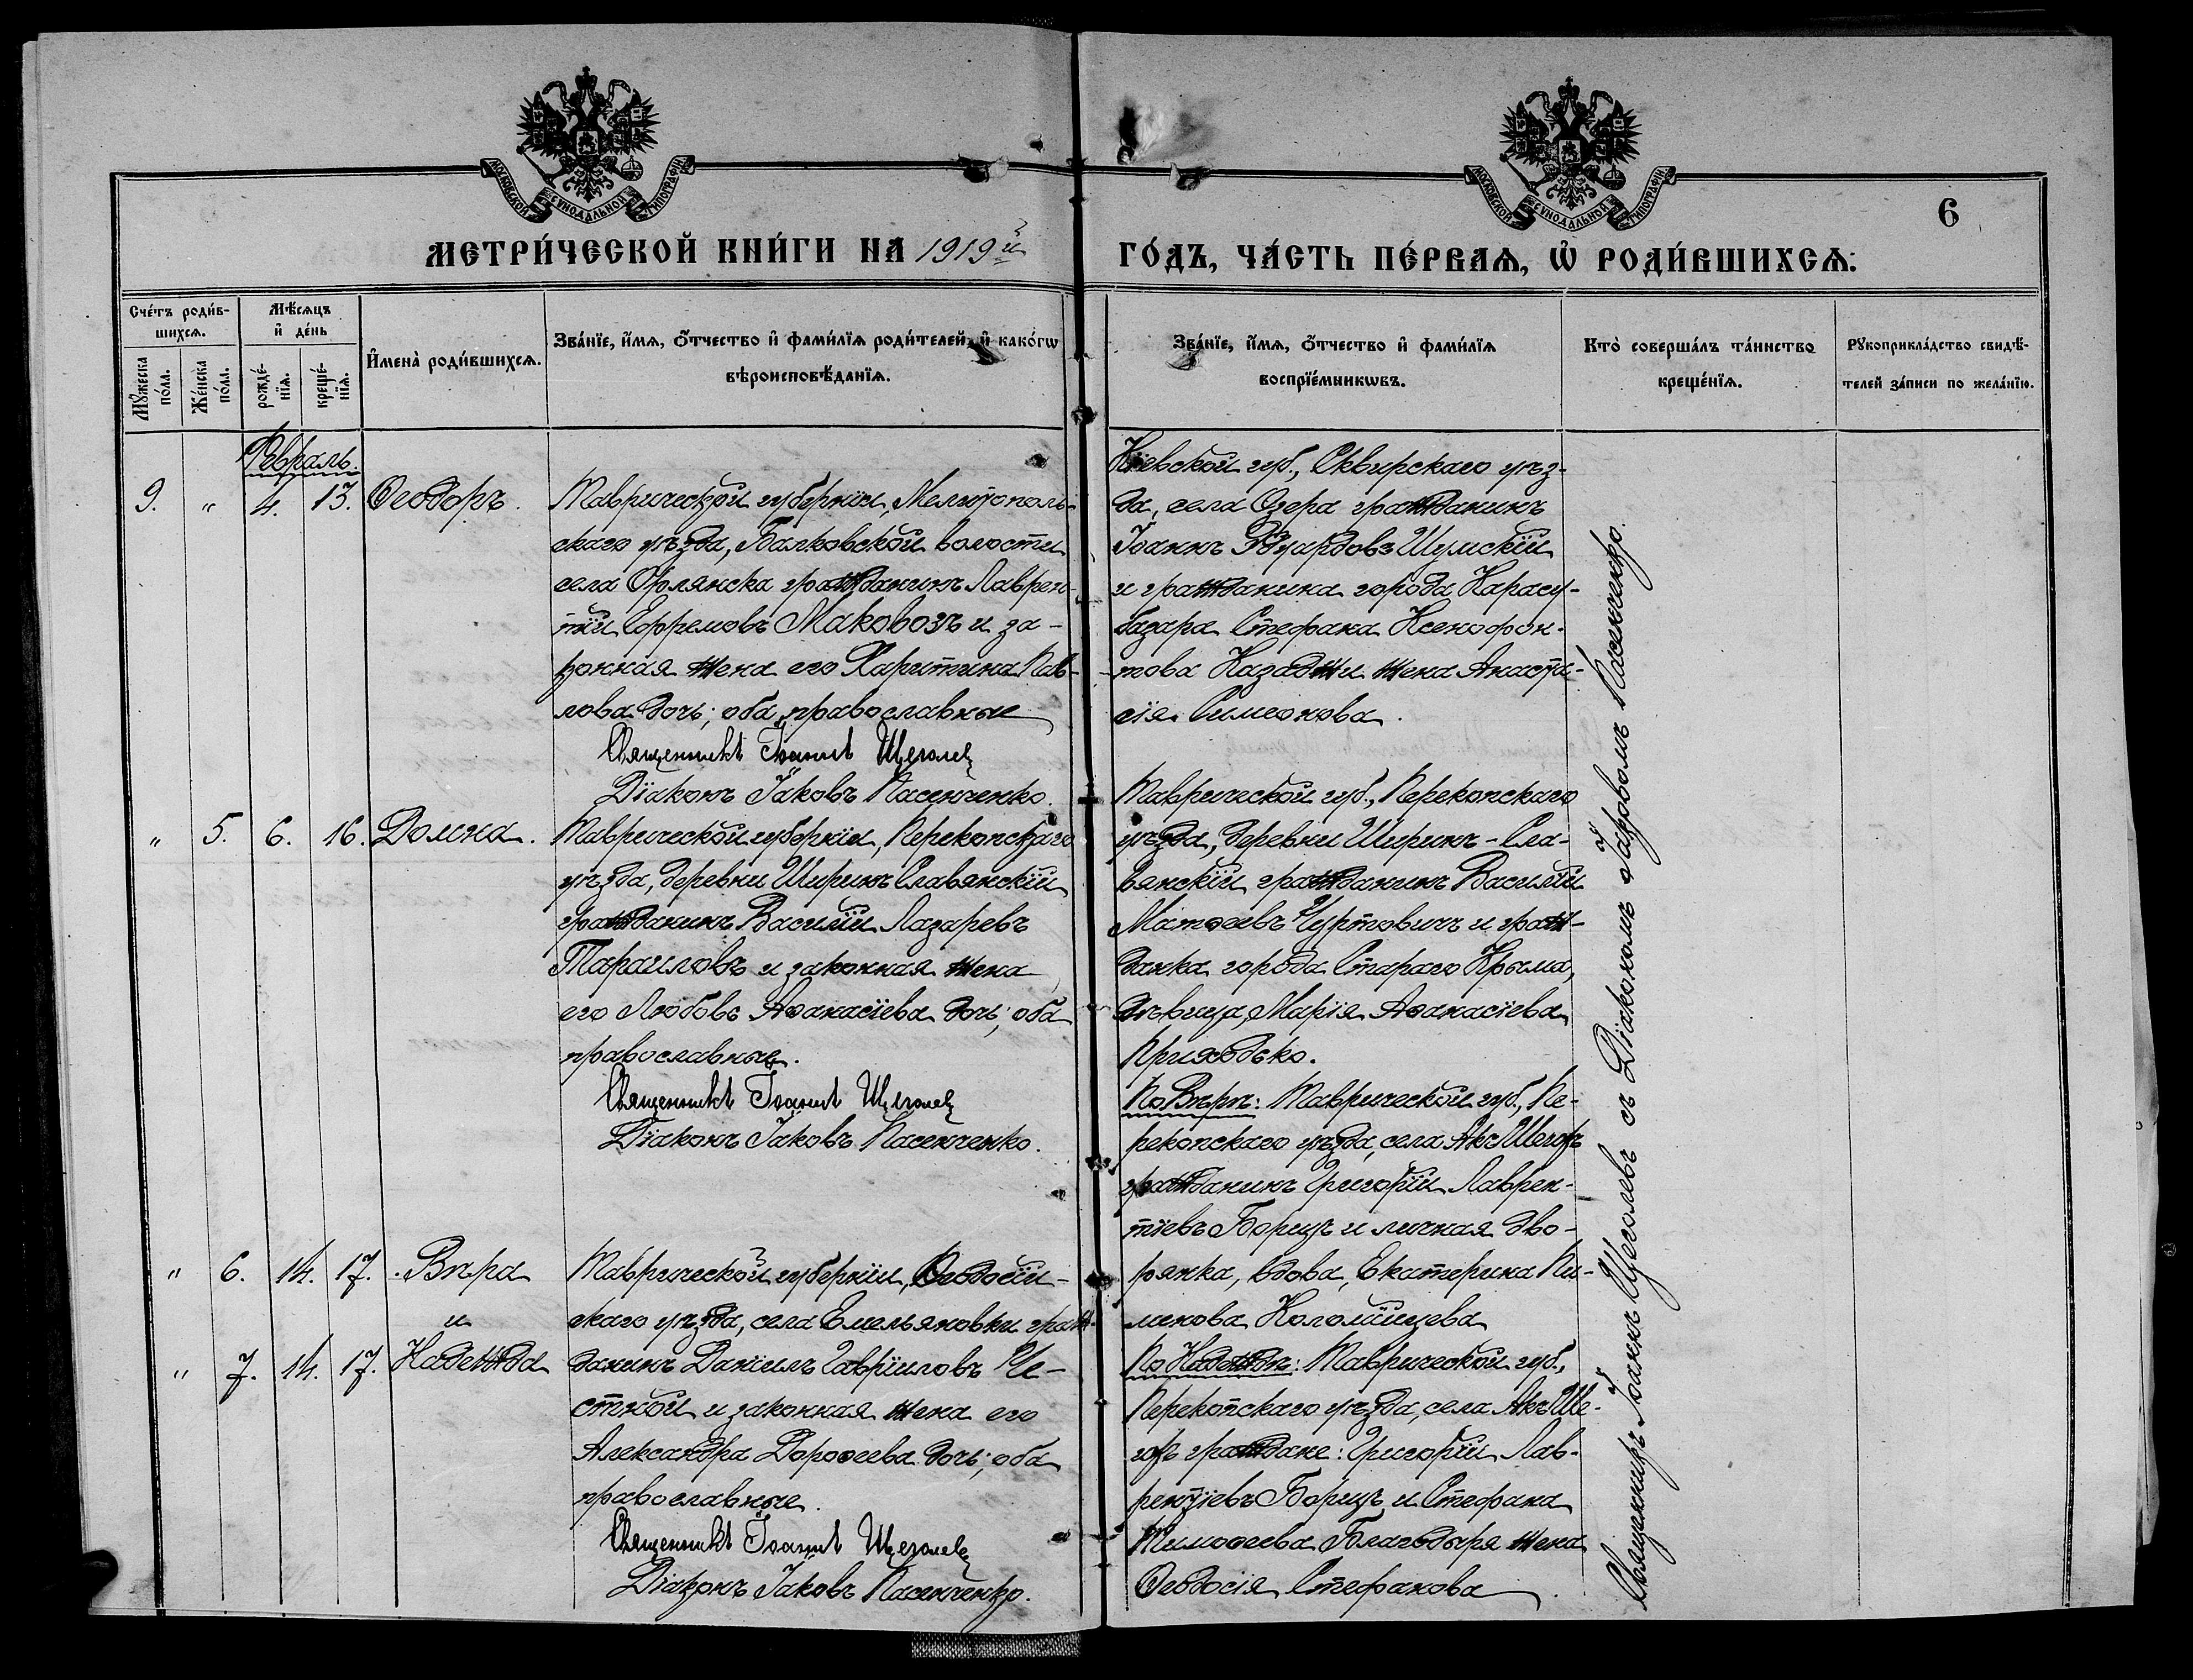 МОСКОВСКОЙ СѴНОДАЛЬНОЙ ТИПОГРАФІИ
МОСКОВСКОЙ СѴНОДАЛЬНОЙ ТИПОГРАФІИ
6
МЕТРИ́ЧЕСКОЙ КНИ́ГИ НА 1919й
ГО́ДЪ, ЧА́СТЬ ПЕ́РВАѦ, Ѡ҆ РОДИ́ВШИХСѦ:
Сче́тъ роди́в-
шихсѧ.
Мꙋ́жеска по́ла.
Же́нска по́ла.
Мѣ́сѧцъ
и҆ де́нь
рожде́-
нїѧ.
креще́-
нїѧ.
И҆мена̀ роди́вшихсѧ.
Зва́нїе, и҆́мѧ, ѻ҆́тчество и҆ фами́лїѧ роди́телей, и҆ како́гѡ
вѣроисповѣ́данїѧ.
Зва́нїе, и҆́мѧ, ѻ҆́тчество и҆ фами́лїѧ
воспрїе́мникѡвъ.
Кто̀ соверша́лъ та́инство
креще́нїѧ.
Рꙋкоприкла́дство свидѣ́-
телей за́писи по жела́нїю.
Февраль.
9. " 4. 13. Ѳеодоръ.
Таврической губерніи, Мелитополь-
скаго уѣзда, Балковской волости
села Орлянска гражданинъ Лаврен-
тій Ефремовъ Маковозъ и за-
конная жена его Харитина Пав-
лова дочь; оба православные
Священникъ Іоаннъ Щеголев
Діаконъ Іаковъ Пасенченко.
Кіевской губ., Сквирскаго уѣз-
да, села Озера гражданинъ
Іоаннъ Эдуардовъ Шумскій
и гражданина города Карасу-
базара Стефана Ксенофон-
това Казаджи жена Анаста-
сія Симеонова.
" 5. 6. 16. Домна.
Таврической губерніи, Перекопскаго
уѣзда, деревни Ширинъ Славянскій
гражданинъ Василій Лазаревъ
Тараиловъ и законная жена
его Любовь Аѳанасіева дочь; оба
православные.
Священникъ Іоаннъ Щеголев
Діаконъ Іаковъ Пасенченко.
Таврической губ., Перекопскаго
уѣзда, деревни Ширинъ-Сла-
вянскій гражданинъ Василій
Матѳеевъ Чуртовичъ и граж-
данка города Стараго Крыма,
дѣвица, Марія Аѳанасіева
Приходько.
" 6. 14. 17. Вѣра
и
" 7. 14. 17. Надежда
Таврической губерніи, Ѳеодосій-
скаго уѣзда, села Емельяновки граж-
данинъ Даніилъ Гавріиловъ Че-
стной и законная жена его
Александра Дороѳеева дочь; оба
православные.
Священникъ Іоаннъ Щеголев
Діаконъ Іаковъ Пасенченко.
По Вѣрѣ: Таврической губ., Пе-
рекопскаго уѣзда, села Акъ Шегохъ
гражданинъ Григорій Лаврен-
тіевъ Борицъ и личная дво-
рянка, вдова, Екатерина Пи-
менова Коломійцева
По Надеждѣ: Таврической губ.,
Перекопскаго уѣзда, села Акъ Ше-
гохъ граждане: Григорій Лав-
рентіевъ Борицъ и Стефана
Тимоѳеева Благодыря жена
Ѳеодосія Стефанова.
Священникъ Іоаннъ Щеголевъ съ Діакономъ Іаковомъ Пасенченко.